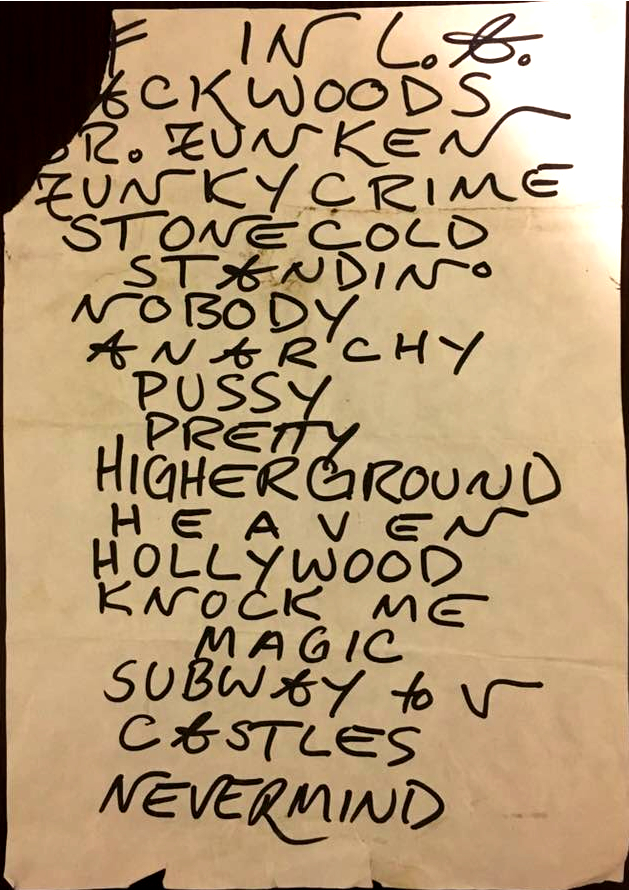 F IN L.A.
ACKWOODS
DR. FUNKEN
FUNKYCRIME
STONECOLD
STANDIN.
NOBODY
ANARCHY
PUSSY
PRETTY
HIGHERGROUND
HEAVEN
HOLLYWOOD
KNOCK ME
MAGIC
SUBWAY to V
CASTLES
NEVERMIND